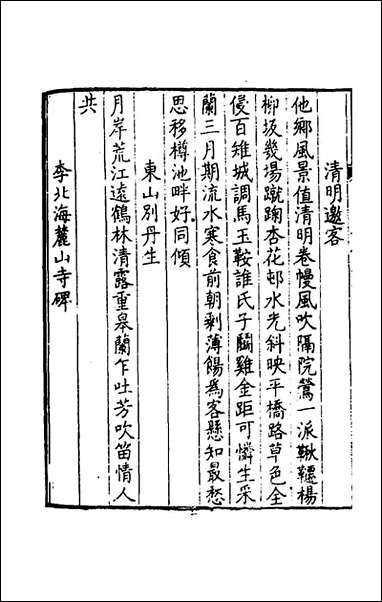 清明邀客
他鄉風景值清明卷幔風吹隔院鶯一派鞦韆楊
柳坂幾場蹴踘杏花邨水光斜映平橋路草色全
侵百雉城調馬玉鞍誰氏子鬭雞金距可憐生采
蘭三月期流水寒食前朝剩薄餳為客懸知最愁
思移樽池畔好同傾
東山別丹生
月岸荒江遠鶴林清露重皋蘭乍吐芳吹笛情人
共
李北海麓山寺碑